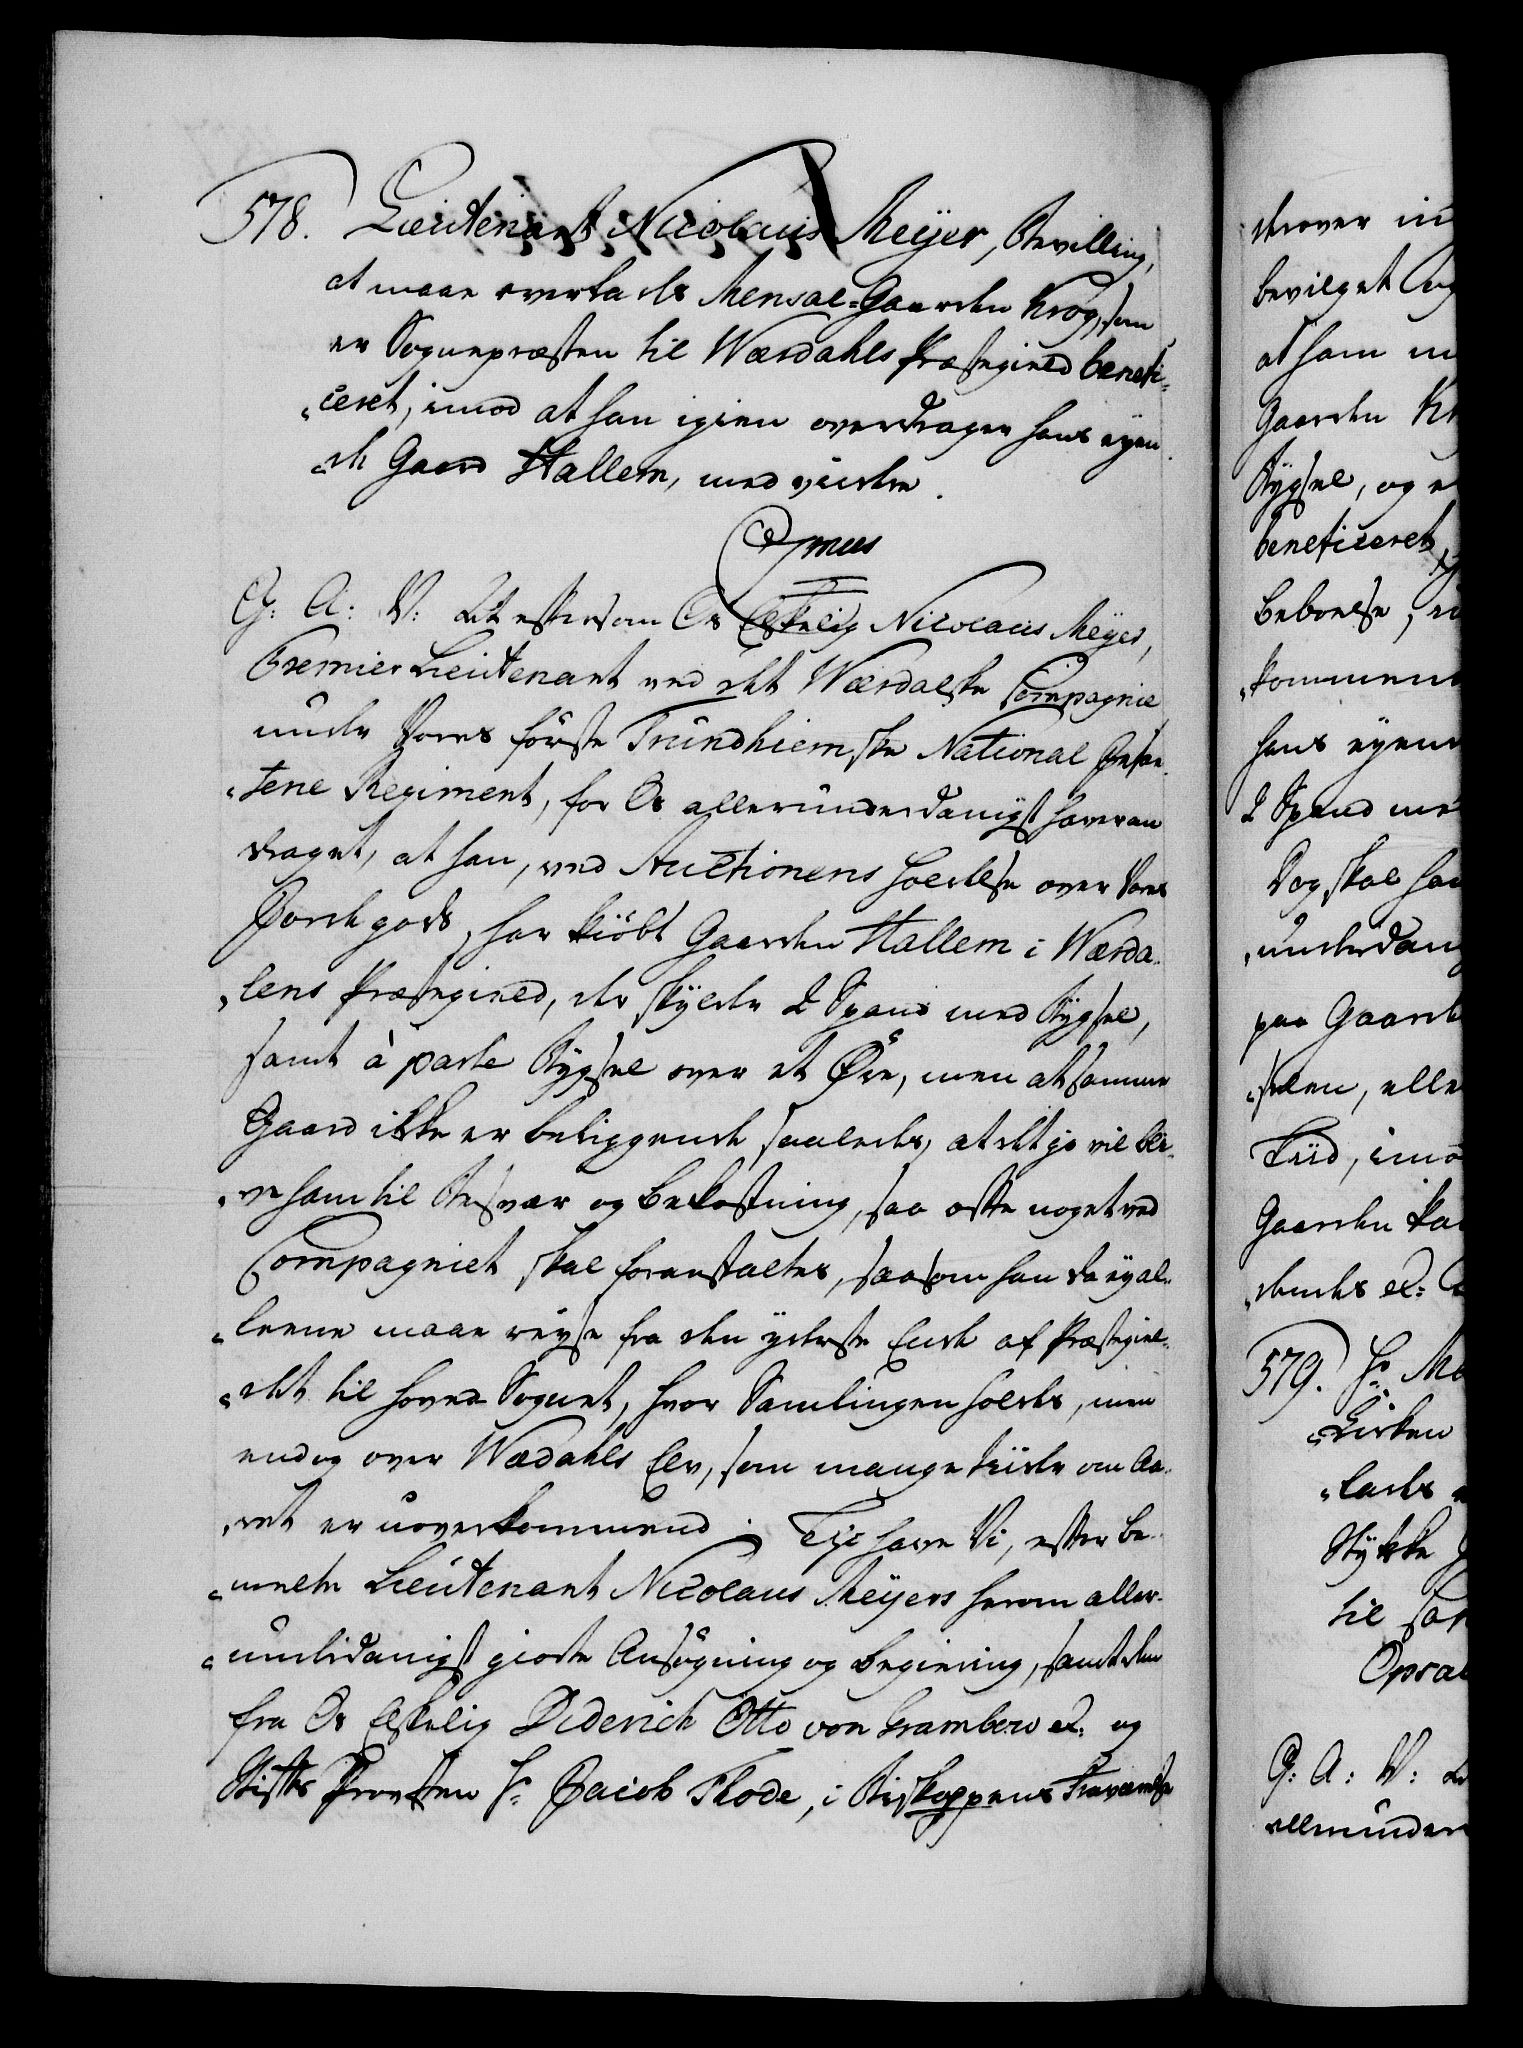 578. Lieutenant Nicolaus Meyer, Bevilling,
at maae overlades Mensal-Gaarden Krog, som
er Sognepræsten til Wærdahls Præstegield benefi-
„ceret, imod at han igien overdrager hans eyen-
„de Gaard Hallem, med videre.
Gneus
G: A: V: At eftersom Os Elskelig Nicolaus Meyer,
Premier Lieutenant ved det Wærdalske Compagnie
under Vores første Trundhiemske National Infan-
„terie Regiment, for Os allerunderdanigst haver an-
draget, at han, ved Auctionens Holdelse over Vores
Jordegods, har kiøbt Gaarden Hallem i Wærda-
„lens Præstegield, der skylder 2 Spand med Bygsel,
samt à parte Bygsel over et Øre, men at samme
Gaard ikke er beliggende saaledes, at det jo vil bli-
„ve ham til Besvær og Bekostning, saa ofte noget ved
Compagniet skal foranstaltes, saasom han da ey al-
„leene maae reyse fra den yderste Ende af Præstegiel-
„det til Hoved Sognet, hvor Samlingen holdes, men
endog over Wædahls Elv, som mange tiider om Aa-
„ret er uoverkommend; Thi have Vi, efter be-
„meldte Lieutenant Nicolaus Meyers herom aller-
„underdanigst giorte Ansøgning og Begiering, samt den
fra Os Elskelig Diderich Otto von Grambow &c: og
Stifts Provsten Hr. Jacob Thode, i Biskoppens Fraværelse
drover in
bevilget Og
at ham m
Gaarden Kr
Bygsel, og e
beneficeret,
Beboelse, i
„kommende
hans eyen
2 Spand me
Dog skal ha
„underdan
paa Gaarde
„sælen, elle
Tiid, imo
Gaarden ka
„dendes &c:
579. Hr. Me
„Kirken
„lades
Stykke
til
Opsa
G: A: V:
allerunder